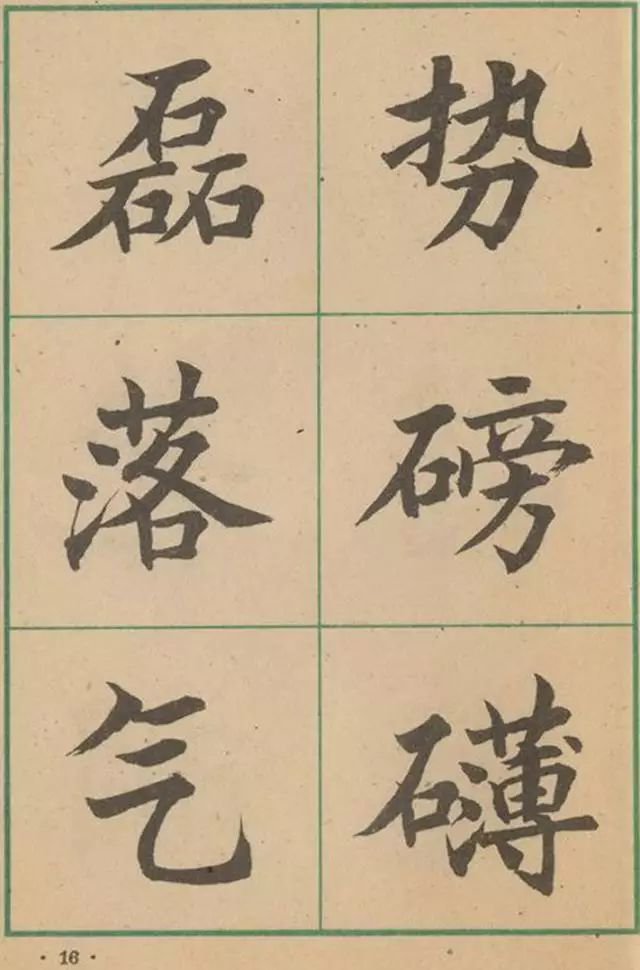 势磅礴
磊落气
· 16 ·